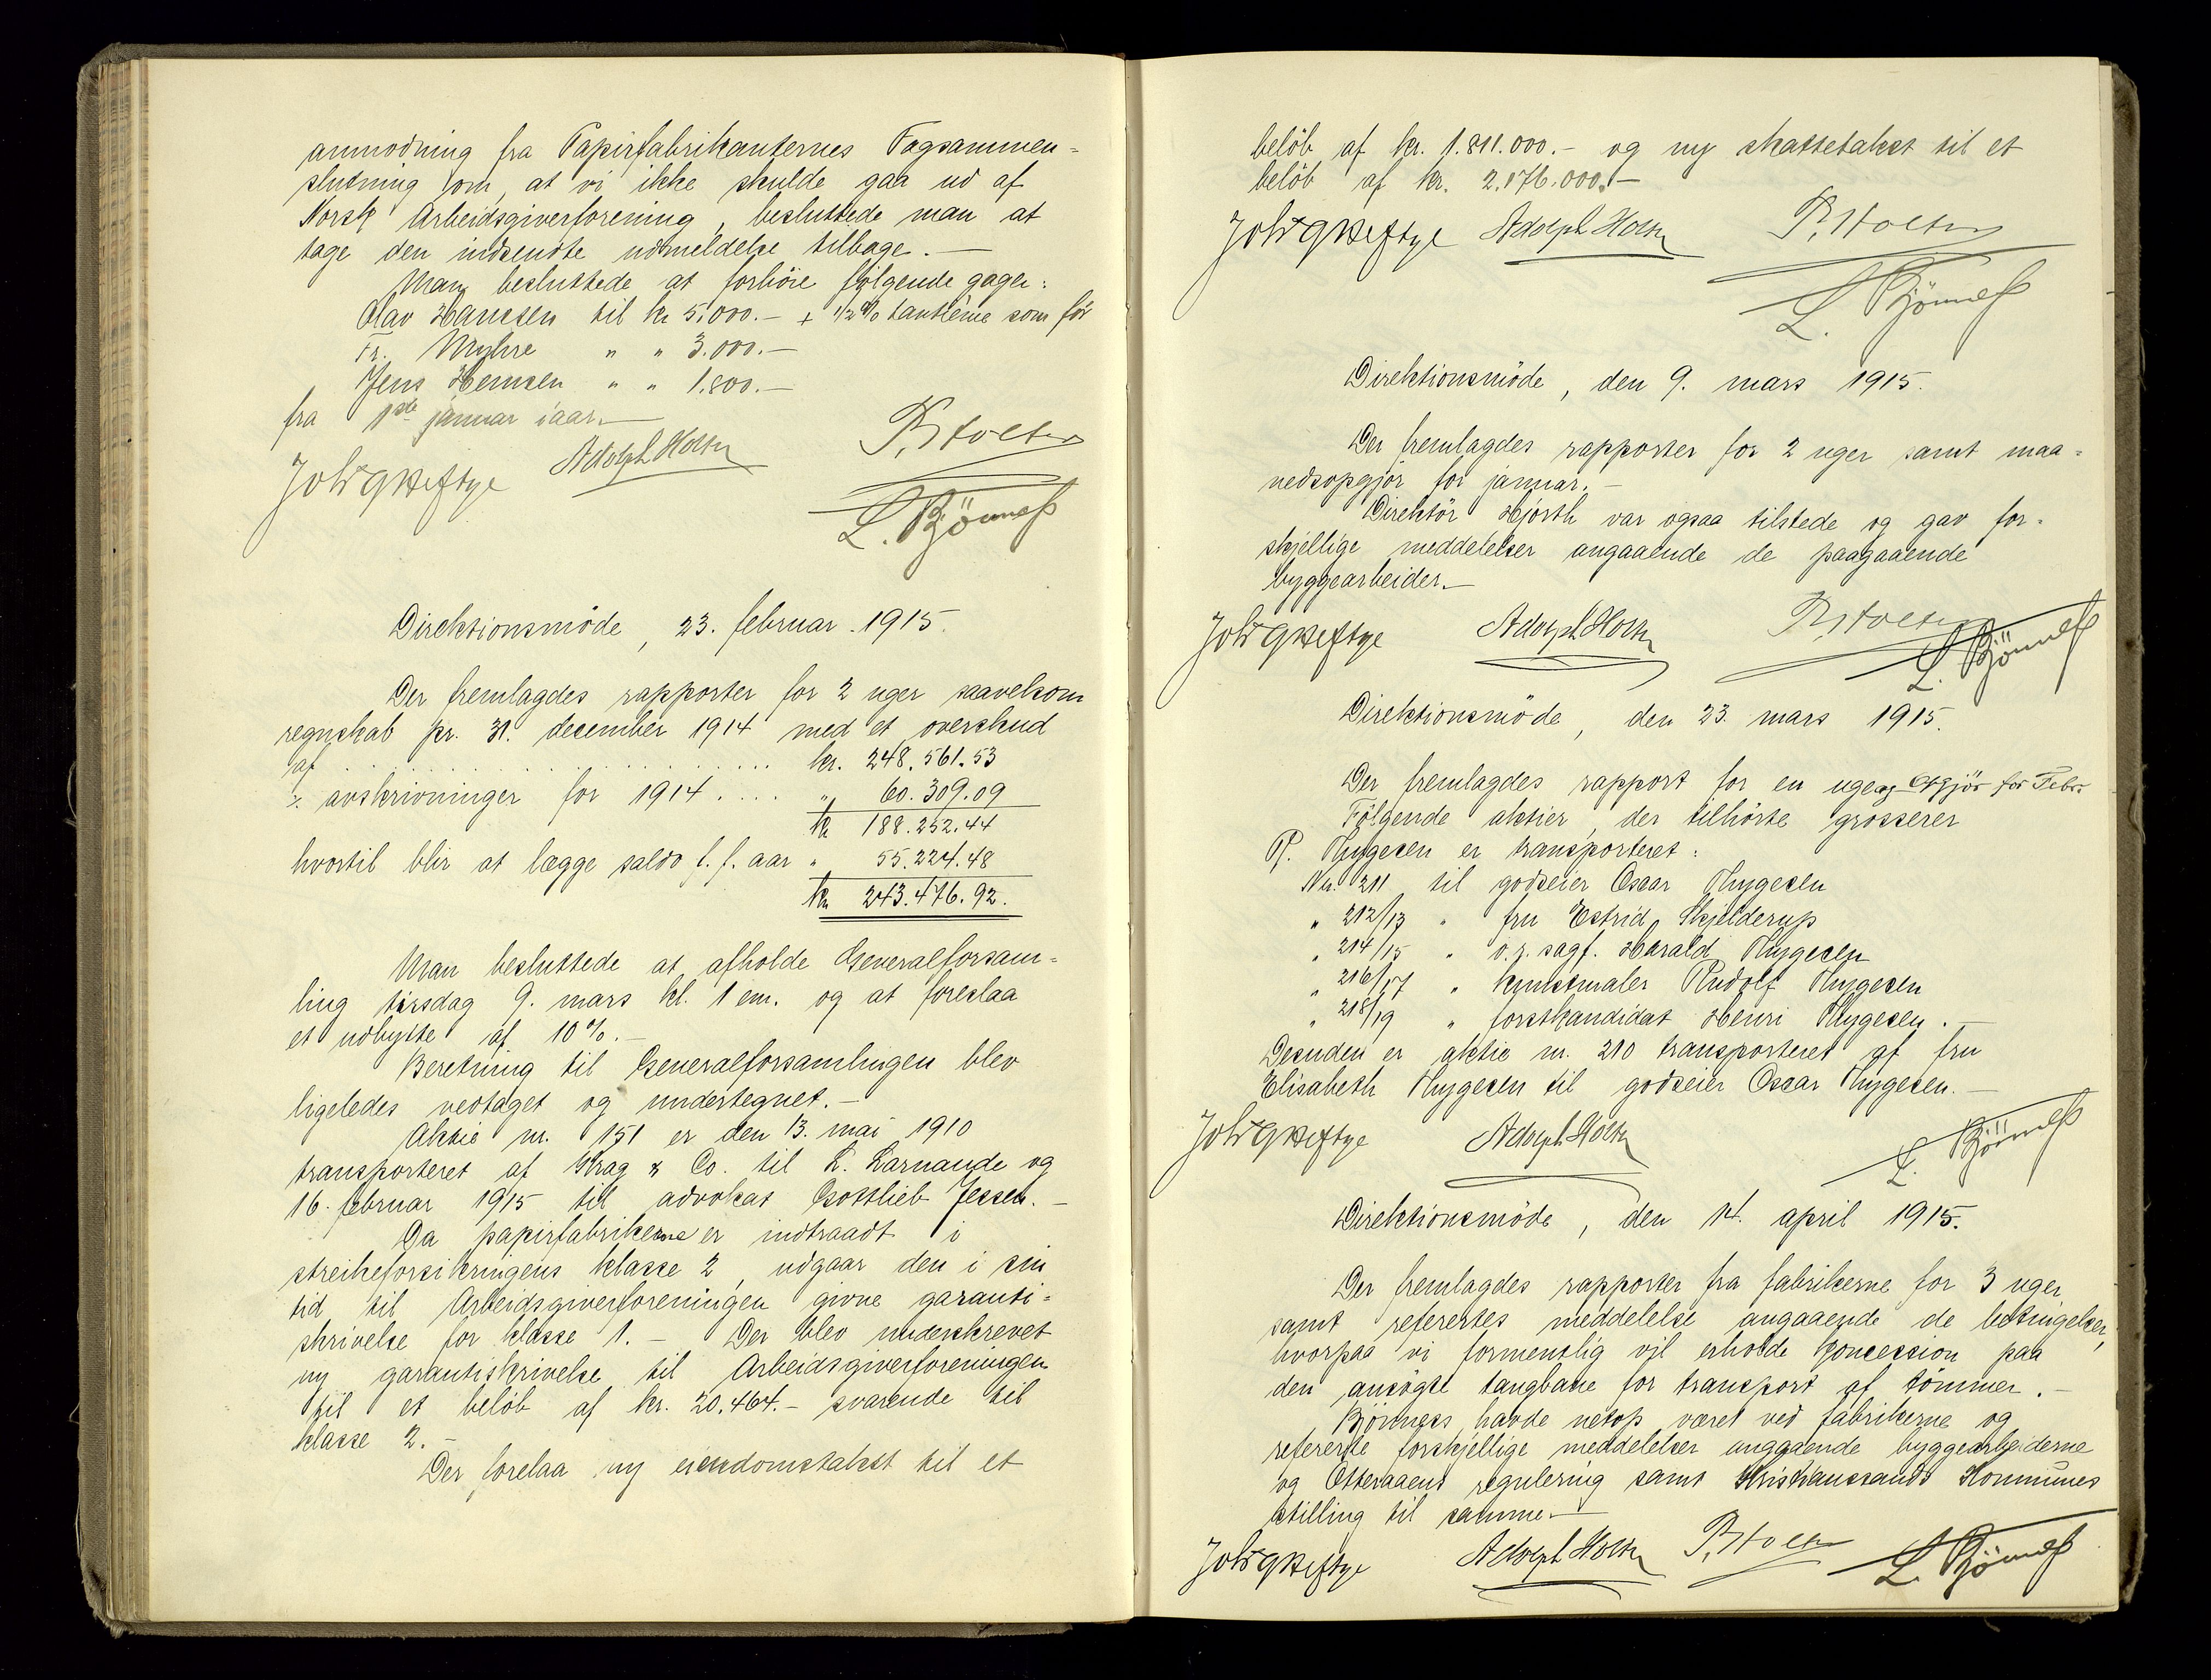 anmodning fra Papirfabrikanternes Fagsammen=
slutning om, at vi ikke skulde gaa ud af
Norsk Arbeidsgiverforening, besluttede man at
tage den indsendte udmeldelse tilbage.—
Man besluttede at forhöie fölgende gager:
Olav Hanssen til kr 5.000.— + 1/2 % tantième som för
Fr. Myhre " " 3.000.—
Jens Hemsen " " 1.800.—
fra 1ste januar iaar.—
Joh. G Heftye Adolph Holth P. Holter
L. Bjönness
Direktionsmöde, 23. februar 1915.
Der fremlagdes rapporter for 2 uger saavelsom
regnskab pr. 31. december 1914 med et overskud
af . . . . . . . . . . kr. 248.561.53
% avskrivninger for 1914 . . . . " 60.309.09
kr 188.252.44
hvortil blir at lægge saldo f. f. aar " 55.224.48
kr 243.476.92.
Man besluttede at afholde Generalforsam=
ling tirsdag 9. mars kl. 1 em. og at foreslaa
et udbytte af 10%.—
Beretning til Generalforsamlingen blev
ligeledes vedtaget og undertegnet.—
Aktie nr. 151 er den 13. mai 1910
transporteret af Krag & Co. til L. Larnaude og
16. februar 1915 til advokat Gottlieb Jessen.—
Da papirfabrikerne er indtraadt i
streikeforsikringens klasse 2, udgaar den i sin
tid til Arbeidsgiverforeningen givne garanti=
skrivelse for klasse 1.— Der blev underskrevet
ny garantiskrivelse til Arbeidsgiverforeningen
til et belöb af kr. 20.464.— svarende til
klasse 2.—
Der forelaa ny eiendomstakst til et
belöb af kr. 1.811.000.— og ny skattetakst til et
belöb af kr. 2.176.000.—
Joh. G Heftye Adolph Holth P. Holter
L. Bjönness
Direktionsmöde, den 9. mars 1915.
Der fremlagdes rapporter for 2 uger samt maa=
nedsopgjör for januar.—
Direktör Hjorth var ogsaa tilstede og gav for=
skjellige meddelelser angaaende de paagaaende
byggearbeider.—
Joh. G Heftye Adolph Holth P. Holter
L. Bjönness
Direktionsmöde, den 23. mars 1915.
Der fremlagdes rapport for en uge og Opgjör for Febr.
Fölgende aktier, der tilhörte grosserer
P. Thygesen er transporteret:
Nr. 211 til godseier Oscar Thygesen
" 212/13 " fru Estrid Skjelderup
" 214/15 " o.r. sagf. Harald Thygesen
" 216/17 " kunstmaler Rudolf Thygesen
" 218/19 " forstkandidat Henri Thygesen.—
Desuden er aktie nr. 210 transporteret af fru
Elisabeth Thygesen til godseier Oscar Thygesen.—
Joh. G Heftye Adolph Holth
L. Bjönness
Direktionsmöde, den 14. april 1915.
Der fremlagdes rapporter fra fabrikerne for 3 uger
samt referertes meddelelse angaaende de betingelser,
hvorpaa vi formentlig vil erholde koncession paa
den ansögte taugbane for transport af tömmer.—
Bjönness havde netop været ved fabrikerne og
refererte forskjellige meddelelser angaaende byggearbeiderne
og Otteraaens regulering samt Kristianssands Kommunes
stilling til samme.—
Joh. G Heftye Adolph Holth P. Holter L. Bjönness